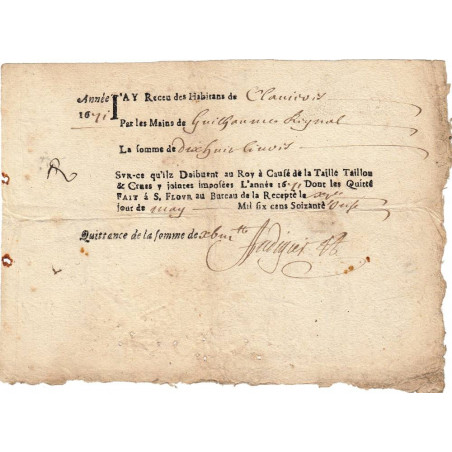 Année I'AY Receu des Habitans de Clauieres
1671 Par les Mains de Guilhaume Rignal
La somme de dixhuit liures
SVR-ce qu'ilz Doibuent au Roy à Cause de la Taille Taillon
& Crues y jointes imposées L'année 1671 Dont les Quitte
FAIT à S. FLOVR au Bureau de la Recepte le
jour de may Mil six cens Soixante Unse
Quittance de la somme de